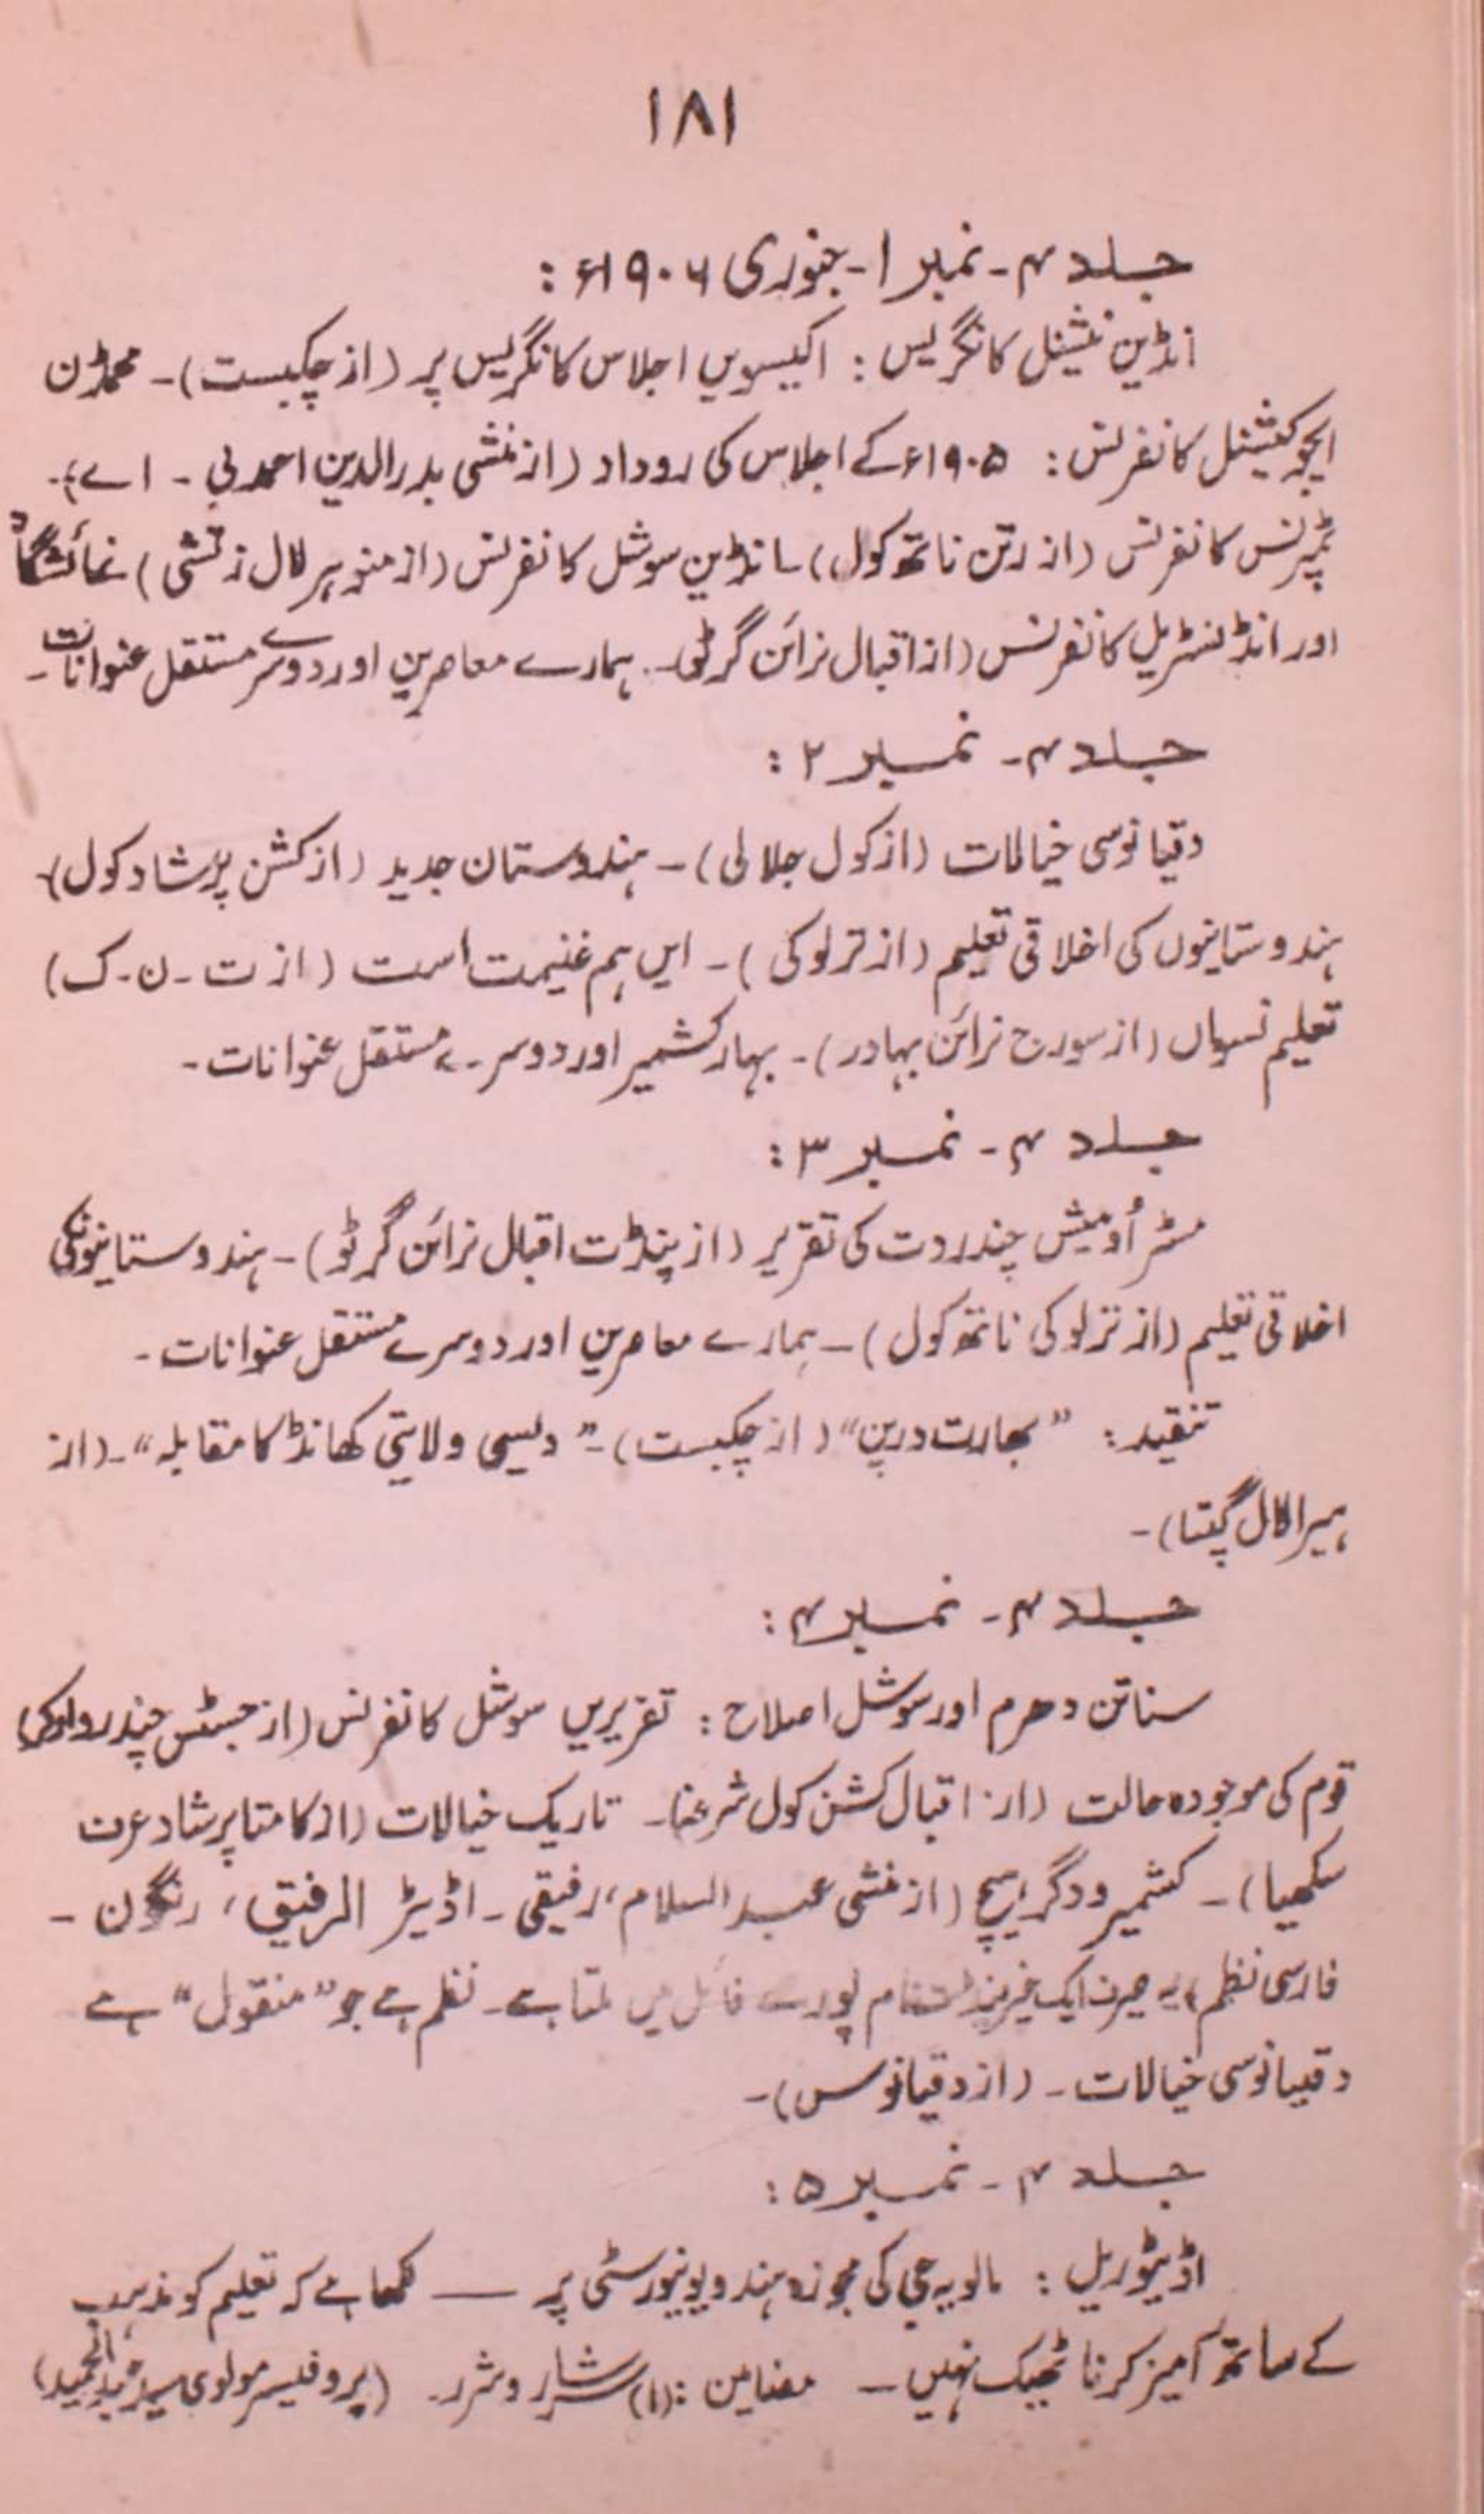 ۱۸۱
جلد ۴ - نمبر ۱ - جنوری ۱۹۰۶ء :
انڈین نیشنل کانگریس : اکیسویں اجلاس کانگریس پر (از چکبست) - محمڈن
ایجوکیشنل کانفرنس : ۱۹۰۵ء کے اجلاس کی روداد (از منشی بدرالدین احمد بی - اے) -
ٹمپرنس کانفرنس (از رتن ناتھ کول) - انڈین سوشل کانفرنس (از منوہر لال زتشی) نمائشگاہ
اور انڈسٹریل کانفرنس (از اقبال نرائن گرٹو) - ہمارے معاصرین اور دوسرے مستقل عنوانات -
جلد ۴ - نمبر ۲ :
دقیانوسی خیالات (از کول جلالی) - ہندوستان جدید (از کشن پرشاد کول)
ہندوستانیوں کی اخلاقی تعلیم (از ترلوکی) - ایں ہم غنیمت است (از ت - ن - ک)
تعلیم نسواں (از سورج نرائن بہادر) - بہار کشمیر اور دوسرے مستقل عنوانات -
جلد ۴ - نمبر ۳ :
مسٹر اُومیش چندر دت کی تقریر (از پنڈت اقبال نرائن گرٹو) - ہندوستانیونکی
اخلاقی تعلیم (از ترلوکی ناتھ کول) - ہمارے معاصرین اور دوسرے مستقل عنوانات -
تنقید : "بھارت درپن" (از چکبست) - "دیسی ولایتی کھانڈ کا مقابلہ" - (از
ہیرا لال گپتا) -
جلد ۴ - نمبر ۴ :
سناتن دھرم اور سوشل اصلاح : تقریریں سوشل کانفرنس (از جسٹس چندرواکر)
قوم کی موجودہ حالت (از اقبال کشن کول شرغا) - تاریک خیالات (از کامتا پرشاد عرف
سکھیا) - کشمیر و دگر ہیچ (از منشی عبدالسلام رفیقی - اڈیٹر الرفیق، رنگون -
فارسی نظم یہ صرف ایک غیر پنڈت نام پورے فائل میں ملتا ہے - نظم ہے جو "منقول" ہے
دقیانوسی خیالات - (از دقیانوس) -
جلد ۴ - نمبر ۵ :
اڈیٹوریل : مالویہ جی کی مجوزہ ہندو یونیورسٹی پر — لکھا ہے کہ تعلیم کو مذہب
کے ساتھ آمیز کرنا ٹھیک نہیں - مضامین : (۱) سرشار و شرر - (پروفیسر مولوی سید عبدالحمید)